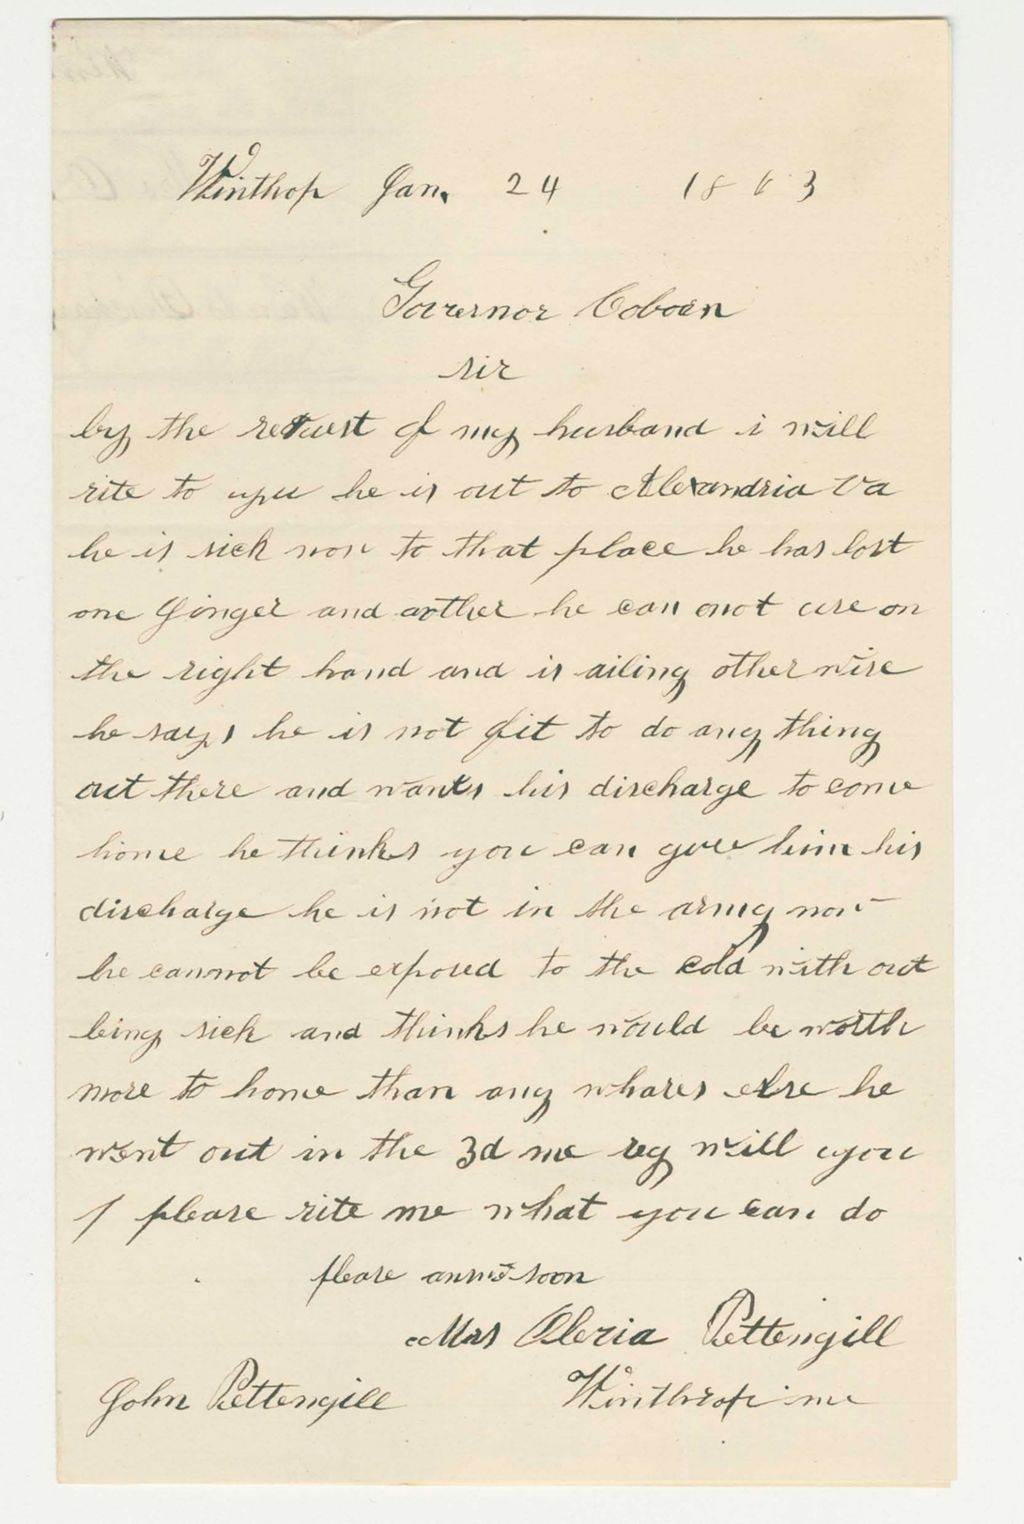 Winthrop Jan. 24 1863
Governor Coboan
sir
by the request of my husband i will
rite to you he is out to Alexandria Va
he is sick now to that place he has lost
one finger and anther he can not use on
the right hand and is ailing other wise
he says he is not fit to do any thing
out there and wants his discharge to come
home he thinks you can give him his
discharge he is not in the army now
he cannot be exposed to the cold with out
being sick and thinks he would be worth
more to home than any whares else he
went out in the 3d me reg will you
please rite me what you can do
please answe soon
Mrs Pettengill
John Pettengill Winthrop me